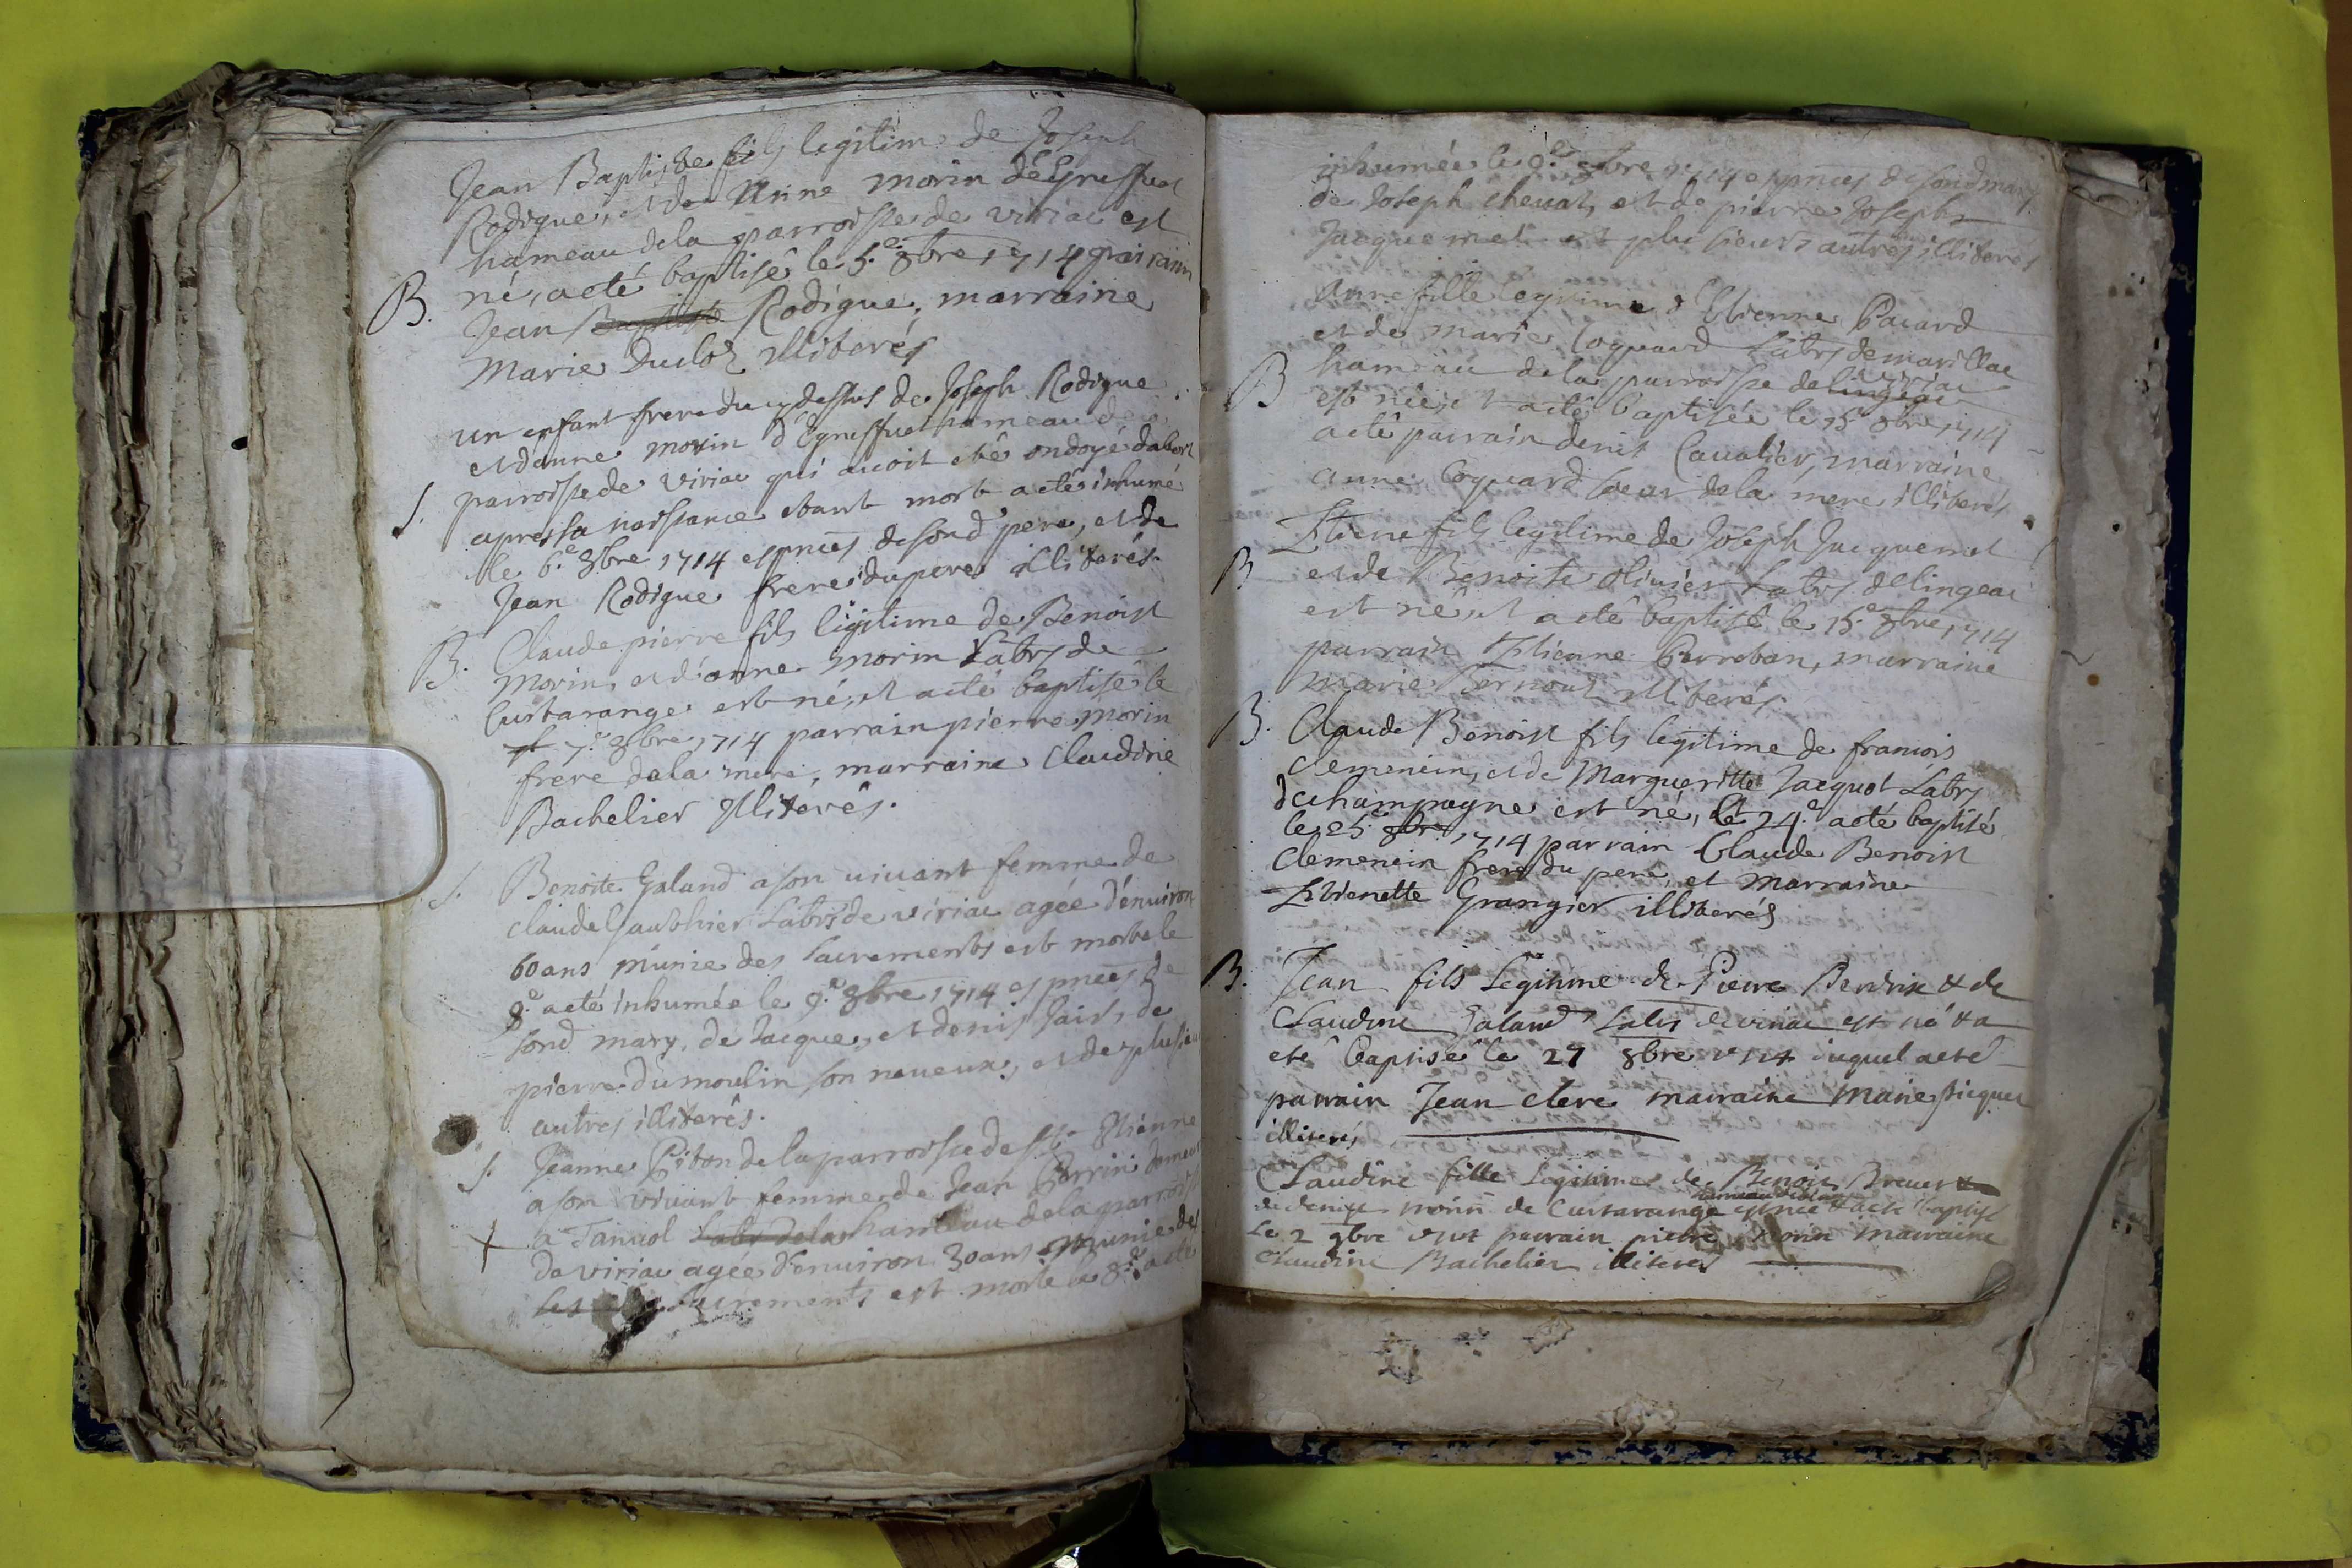 Jean Baptiste fils legitime de Joseph
Rodigue, et de Anne morin d'Egreffuel
hameau dela parroisse de viriac est
B. né, acté baptisé le 5.e 8bre 1714 parrain
Jean Baptiste Rodigue, marraine
Marie Ducloz illiterés
un enfant frere du cy dessus de Joseph Rodigue
et d'anne morin d'Egreffuel hameau de la
S. parroisse de viriac qui avoit eté ondoyé dabort
apres sa naissance etant mort acté inhumé
le 6.e 8bre 1714 es pnces de sond' pere, et de
Jean Rodigue frere du pere illiterés.
B. Claude pierre fils legitime de Benoist
morin, et d'anne morin Labrs de
Curtarange est né, et acté baptisé le
7.e 8bre 1714 parrain pierre morin
frere dela mere, marraine Claudine
Bachelier illiterés.
S. Benoite Galand a son vivant femme de
claude Gauthier Labrs de viriac agée d'environ
60 ans munie des sacrements est morte le
8.e acté inhumée le 9.e 8bre 1714 es pnces de
sond mary, de Jacque, et denis Jais, de
pierre dumoulin son neveux, et de plusieurs
autres illiterés.
S. Jeanne Piton de la parroisse de st Etienne
a son vivant femme de Jean Perrin demeurt
a Tanvol Labr dela hameau dela parroisse
de viriac agée d'environ 30 ans munie des
les sacrements est morte le 8.e acté
inhumée le 9.e 8bre 1714 es pnces de sond mary
de Joseph chevat, et de pierre Joseph
Jacquemet et plusieurs autres illiterés
Anne fille legitime d'Etienne Pacard
et de marie Coquard Labrs de marillac
viriac
B hameau dela parroisse de lingeac
est née, et acté baptisée le 15.e 8bre 1714
acté parrain denis Cavalier, marraine
anne Coquard soeur dela mere illiterés
Etiene fils legitime de Joseph Jacquemet
B et de Benoite olivier Labrs de lingeac
est né, et acté baptisé le 15.e 8bre 1714
parrain Etienne Perroban, marraine
marie illiterés.
B. Claude Benoist fils legitime de francois
Clemencin, et de Margueritte Jacquet Labrs
de champagne est né, le 24.e acté baptisé
le 25.e 8bre 1714 parrain Claude Benoist
Clemencin frere du pere, et marraine
Etienette Grangier illiterés
B. Jean fils Legitime de Pierre Perdrix & de
Claudine Galand Labrs de viriac est né & a
eté baptisé le 27 8bre 1714 duquel acté
parrain Jean clere marraine Marie picquet
illiterés
Claudine fille Legitime de Benoit Brever &
hameau de
de denise morin de Curtarange est née & acté baptisé
Le 2 9bre parrain pierre morin marraine
Claudine Bachelier illiterés